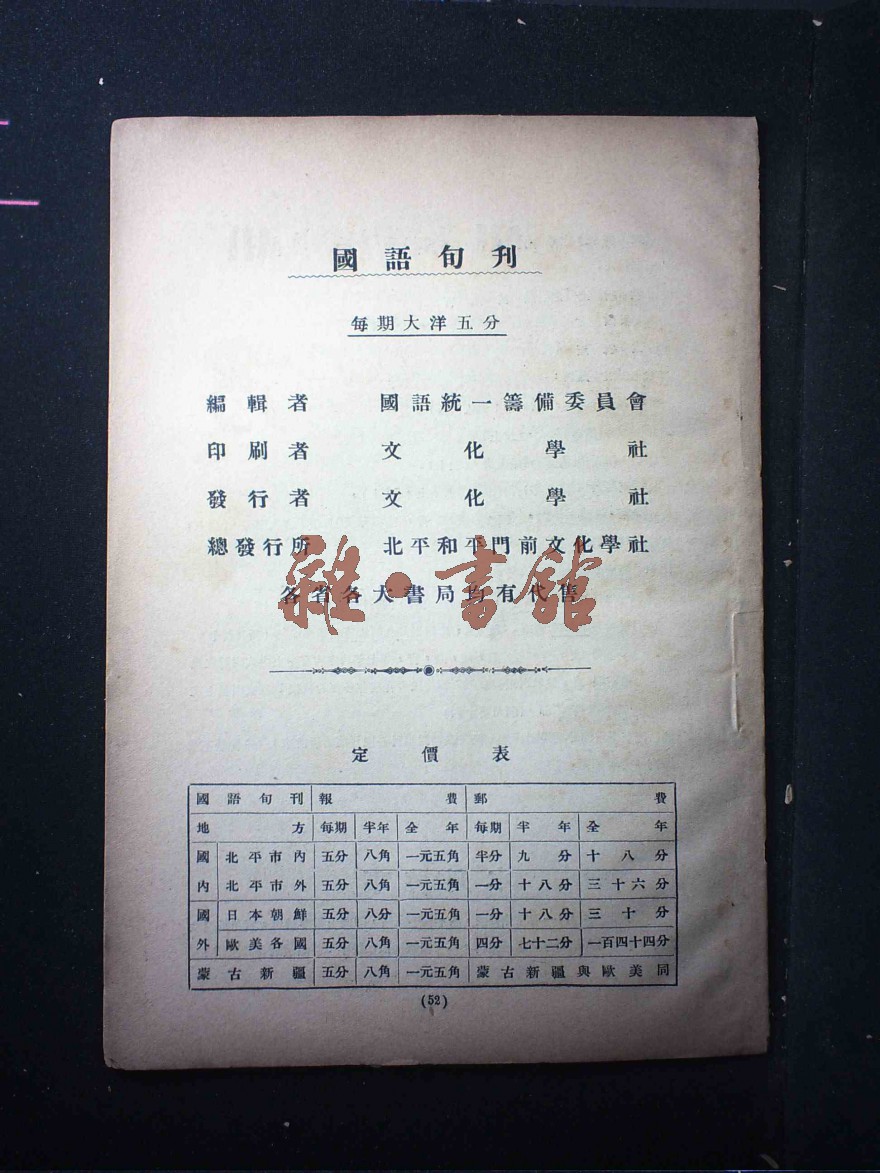 國語旬刊
每期大洋五分
編輯者 國語統一籌備委員會
印刷者 文化學社
發行者 文化學社
總發行所 北平和平門前文化學社
各省各大書局均有代售
雜·書館
定價表
國語旬刊 報費 郵費
地方 每期 半年 全年 每期 半年 全年
國 北平市內 五分 八角 一元五角 半分 九分 十八分
內 北平市外 五分 八角 一元五角 一分 十八分 三十六分
國 日本朝鮮 五分 八分 一元五角 一分 十八分 三十分
外 歐美各國 五分 八角 一元五角 四分 七十二分 一百四十四分
蒙古新疆 五分 八角 一元五角 蒙古新疆與歐美同
(52)